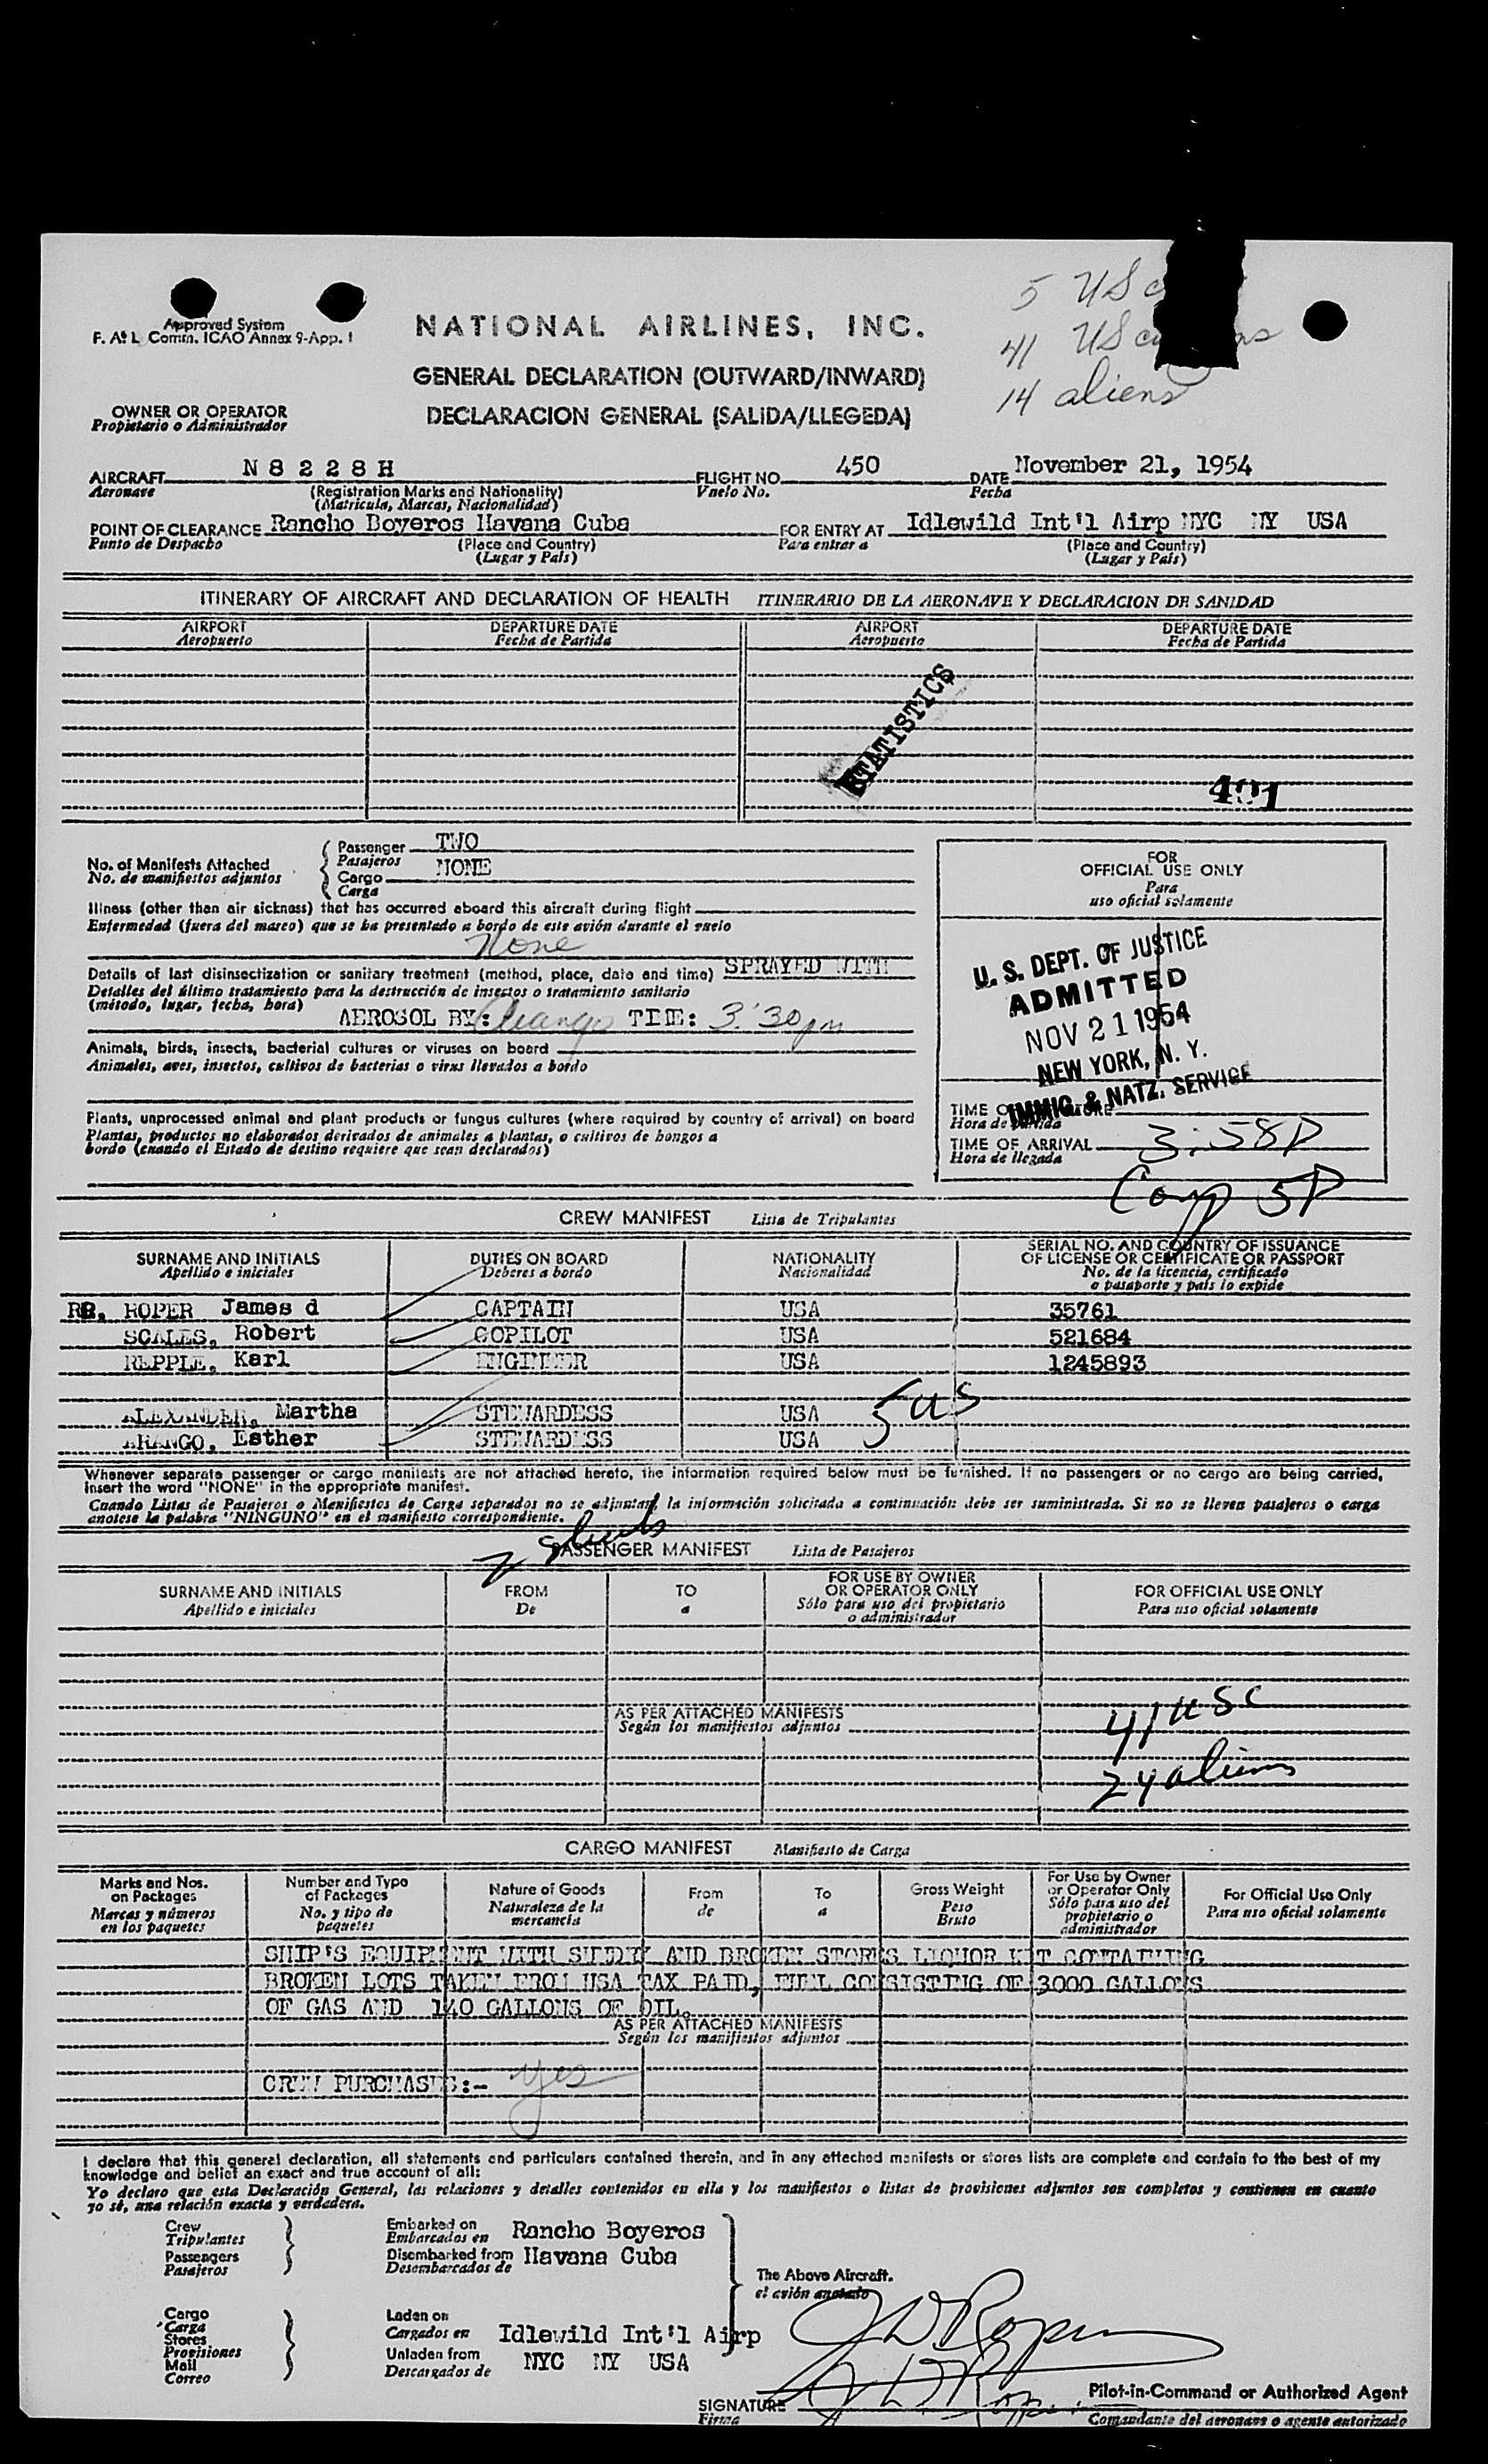 5 US
41 US
14 aliens
Approved System
F. A. L. Comm. ICAO Annex 9-App. 1
NATIONAL AIRLINES, INC.
GENERAL DECLARATION (OUTWARD/INWARD)
DECLARACION GENERAL (SALIDA/LLEGEDA)
OWNER OR OPERATOR
Propietario o Administrador
AIRCRAFT N 8 2 2 8 H FLIGHT NO. 450 DATE November 21, 1954
Aeronave (Registration Marks and Nationality) Vuelo No. Fecha
(Matricula, Marcas, Nacionalidad)
POINT OF CLEARANCE Rancho Boyeros Havana Cuba FOR ENTRY AT Idlewild Int'l Airp NYC NY USA
Punto de Despacho (Place and Country) Para entrar a (Place and Country)
(Lugar y País) (Lugar y País)
ITINERARY OF AIRCRAFT AND DECLARATION OF HEALTH ITINERARIO DE LA AERONAVE Y DECLARACION DE SANIDAD
AIRPORT DEPARTURE DATE AIRPORT DEPARTURE DATE
Aeropuerto Fecha de Partida Aeropuerto Fecha de Partida
STATISTICS
401
No. of Manifests Attached Passenger TWO
No. de manifiestos adjuntos Pasajeros
Cargo NONE
Carga
Illness (other than air sickness) that has occurred aboard this aircraft during flight
Enfermedad (fuera del mareo) que se ha presentado a bordo de este avión durante el vuelo
None
Details of last disinsectization or sanitary treatment (method, place, date and time) SPRAYED WITH
Detalles del último tratamiento para la destrucción de insectos o tratamiento sanitario
(método, lugar, fecha, hora) AEROSOL BY: TIME: 3:30pm
Animals, birds, insects, bacterial cultures or viruses on board
Animales, aves, insectos, cultivos de bacterias o virus llevados a bordo
Plants, unprocessed animal and plant products or fungus cultures (where required by country of arrival) on board
Plantas, productos no elaborados derivados de animales a plantas, o cultivos de hongos a
bordo (cuando el Estado de destino requiere que sean declarados)
FOR
OFFICIAL USE ONLY
Para
uso oficial solamente
U. S. DEPT. OF JUSTICE
ADMITTED
NOV 21 1954
NEW YORK, N. Y.
IMMIG. & NATZ. SERVICE
TIME OF
Hora de partida
TIME OF ARRIVAL 3:58P
Hora de llegada
5P
CREW MANIFEST Lista de Tripulantes
SURNAME AND INITIALS DUTIES ON BOARD NATIONALITY SERIAL NO. AND COUNTRY OF ISSUANCE
Apellido e iniciales Deberes a bordo Nacionalidad OF LICENSE OR CERTIFICATE OR PASSPORT
No. de la licencia, certificado
o pasaporte y país lo expide
ROPER James d CAPTAIN USA 35761
SCALES, Robert COPILOT USA 521684
REPPLE, Karl ENGINEER USA 1245893
ALEXANDER, Martha STEWARDESS USA
ARANGO, Esther STEWARDESS USA
5 US
Whenever separate passenger or cargo manifests are not attached hereto, the information required below must be furnished. If no passengers or no cargo are being carried,
insert the word "NONE" in the appropriate manifest.
Cuando Listas de Pasajeros o Manifiestos de Carga separados no se adjuntan, la información solicitada a continuación debe ser suministrada. Si no se lleven pasajeros o carga
anotese la palabra "NINGUNO" en el manifiesto correspondiente.
2 sheets
PASSENGER MANIFEST Lista de Pasajeros
SURNAME AND INITIALS FROM TO FOR USE BY OWNER FOR OFFICIAL USE ONLY
Apellido e iniciales De a OR OPERATOR ONLY Para uso oficial solamente
Sólo para uso del propietario
o administrador
AS PER ATTACHED MANIFESTS
Según los manifiestos adjuntos
41 USC
24 aliens
CARGO MANIFEST Manifiesto de Carga
Marks and Nos. Number and Type Nature of Goods From To Gross Weight For Use by Owner For Official Use Only
on Packages of Packages Naturaleza de la de a Peso or Operator Only Para uso oficial solamente
Marcas y números No. y tipo de mercancía Bruto Sólo para uso del
en los paquetes paquetes propietario o
administrador
SHIP'S EQUIPMENT WITH SUNDRY AND BROKEN STORES LIQUOR KIT CONTAINING
BROKEN LOTS TAKEN FROM USA TAX PAID, FUEL CONSISTING OF 3000 GALLONS
OF GAS AND 140 GALLONS OF OIL.
AS PER ATTACHED MANIFESTS
Según los manifiestos adjuntos
CREW PURCHASES:- yes
I declare that this general declaration, all statements and particulars contained therein, and in any attached manifests or stores lists are complete and contain to the best of my
knowledge and belief an exact and true account of all:
Yo declaro que esta Declaración General, las relaciones y detalles contenidos en ella y los manifiestos o listas de provisiones adjuntos son completos y contienen en cuanto
yo sé, una relación exacta y verdadera.
Crew Embarked on Rancho Boyeros
Tripulantes Embarcados en
Passengers Disembarked from Havana Cuba
Pasajeros Desembarcados de
The Above Aircraft.
el avión anotado
Cargo Laden on
Carga Cargados en Idlewild Int'l Airp
Stores
Provisiones Unladen from NYC NY USA
Mail Descargados de
Correo
J D Roper
J D Roper
SIGNATURE Pilot-in-Command or Authorized Agent
Firma Comandante del aeronave o agente autorizado